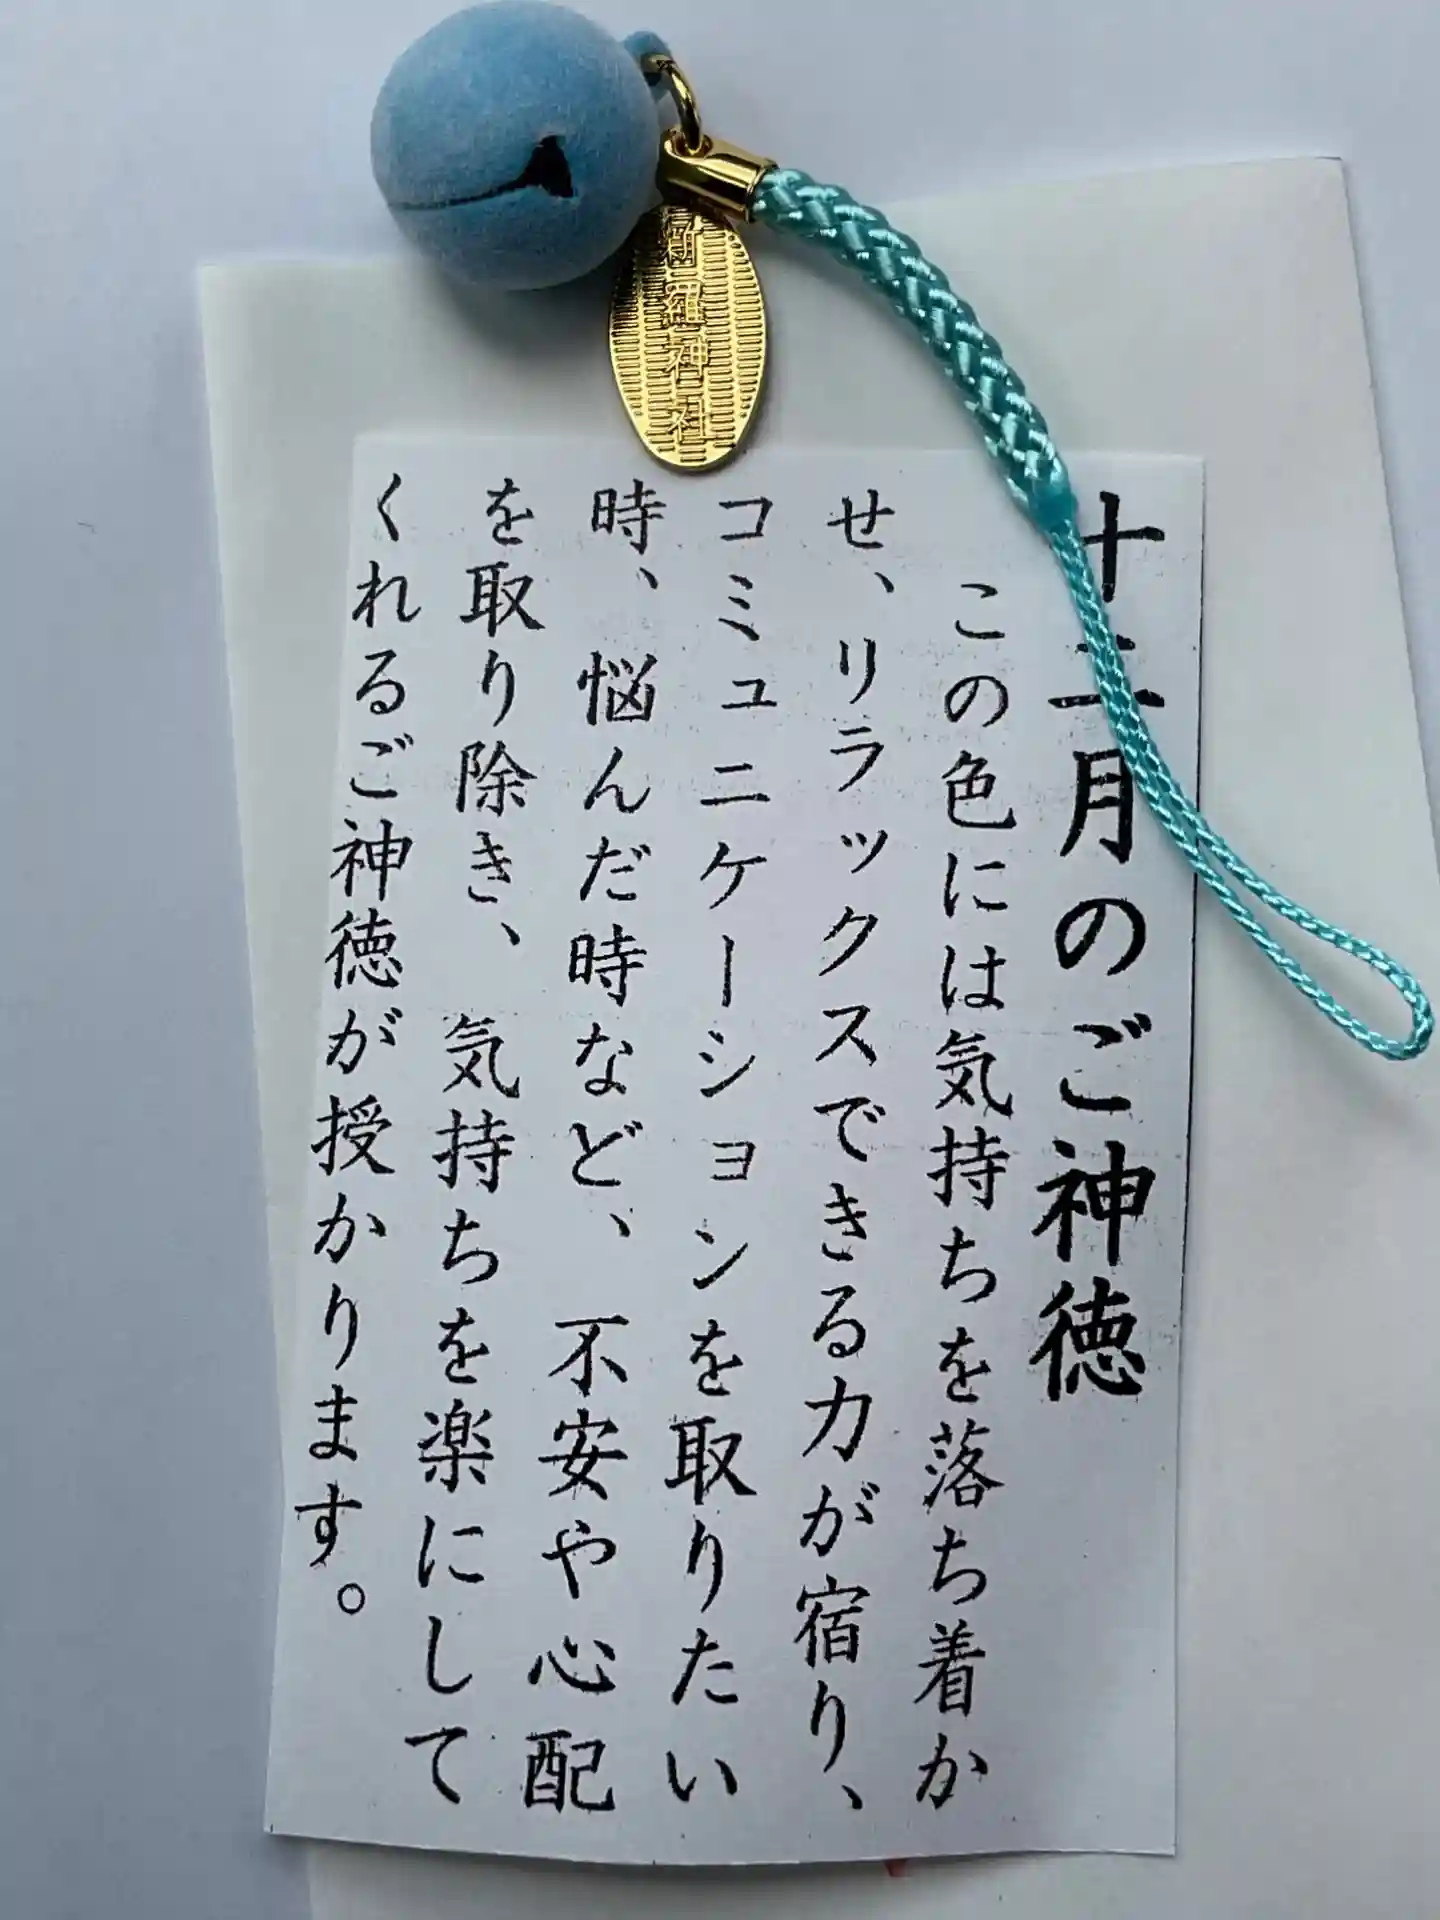 新羅神社
十二月のご神徳
この色には気持ちを落ち着か
せ、リラックスできる力が宿り、
コミュニケーションを取りたい
時、悩んだ時など、不安や心配
を取り除き、気持ちを楽にして
くれるご神徳が授かります。